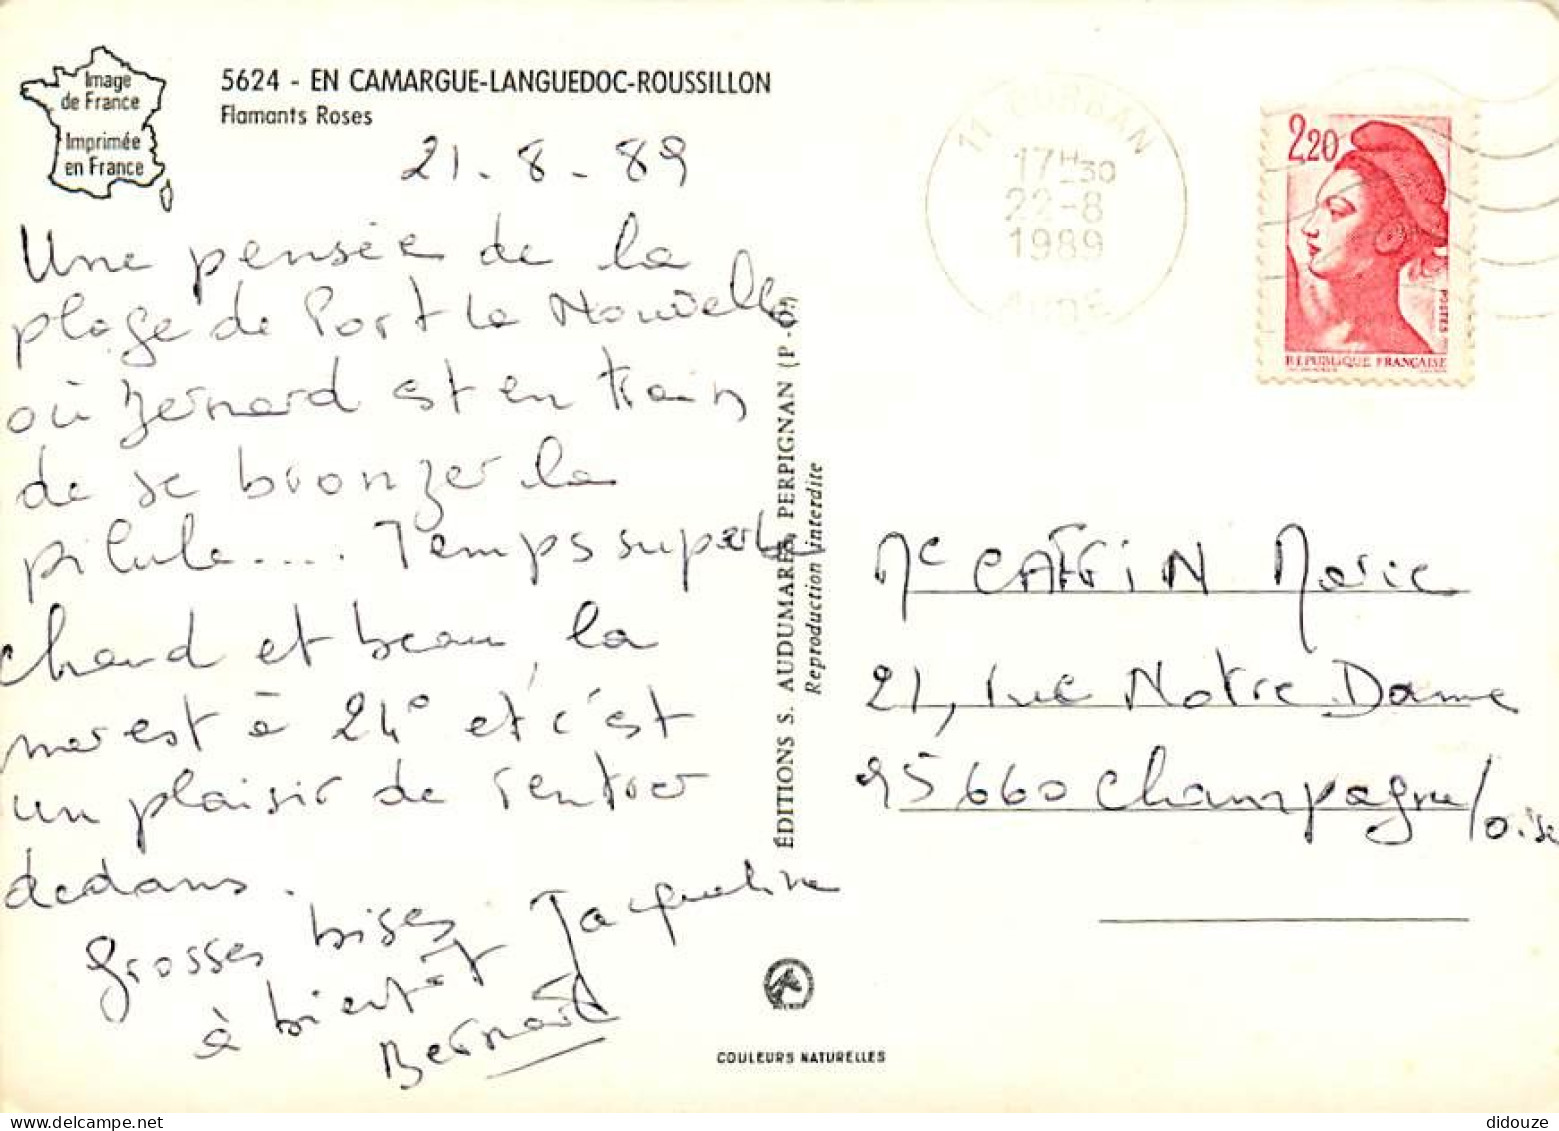 Image
de France
Imprimée
en France
5624 - EN CAMARGUE-LANGUEDOC-ROUSSILLON
Flamants Roses
21.8.89
Une pensée de la
plage de Port la Nouvelle
où Bernard est en train
de se bronzer la
pilule.... Temps superbe
chaud et beau, la
mer est à 24° et c'est
un plaisir de rentrer
dedans.
Grosses bises Jacqueline
à bientôt
Bernard
ÉDITIONS S. AUDUMARES, PERPIGNAN (P.-O.)
Reproduction interdite
COULEURS NATURELLES
11 DURBAN
17H30
22-8
1989
AUDE
2,20
POSTES
REPUBLIQUE FRANÇAISE
Me CAFFIN Marie
21, rue Notre Dame
95660 Champagne/Oise
didouze